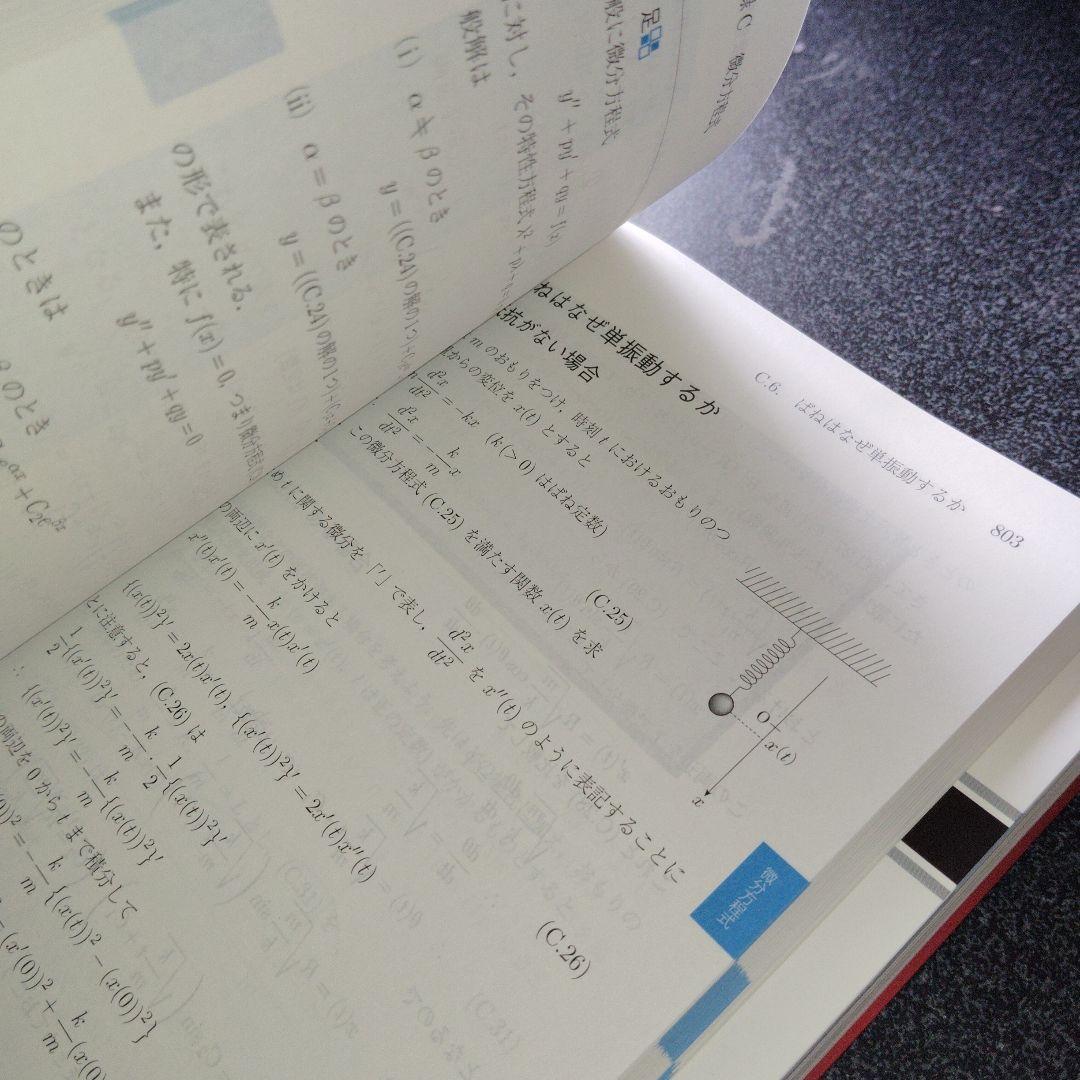 C 微分方程式
足
般に微分方程式
y″ + py′ + qy = f(x)
に対し，その特性方程式
般解は
(i) α ≠ β のとき
y = ((C.24) の解の1つ)
(ii) α = β のとき
y = ((C.24) の解の1つ)
の形で表される．
また，特に f(x) = 0，つまり微分方程式
y″ + py′ + qy = 0
のときは
のとき
C.6. ばねはなぜ単振動するか 803
ねはなぜ単振動するか
抗がない場合
m のおもりをつけ，時刻 t におけるおもりのつ
からの変位を x(t) とすると
d²x/dt² = −kx (k (> 0) はばね定数)
∴ d²x/dt² = −(k/m)x (C.25)
この微分方程式 (C.25) を満たす関数 x(t) を求
O
x(t)
x
め t に関する微分を「′」で表し，d²x/dt² を x″(t) のように表記することに
の両辺に x′(t) をかけると
x″(t)x′(t) = −(k/m)x(t)x′(t) (C.26)
{(x(t))²}′ = 2x(t)x′(t), {(x′(t))²}′ = 2x′(t)x″(t)
とに注意すると，(C.26) は
1/2{(x′(t))²}′ = −(k/m)·1/2{(x(t))²}′
∴ {(x′(t))²}′ = −(k/m){(x(t))²}′
の両辺を 0 から t まで積分して
(0))² = −(k/m){(x(t))² − (x(0))²}
(x′(0))² + (k/m)(x(0)
微分方程式